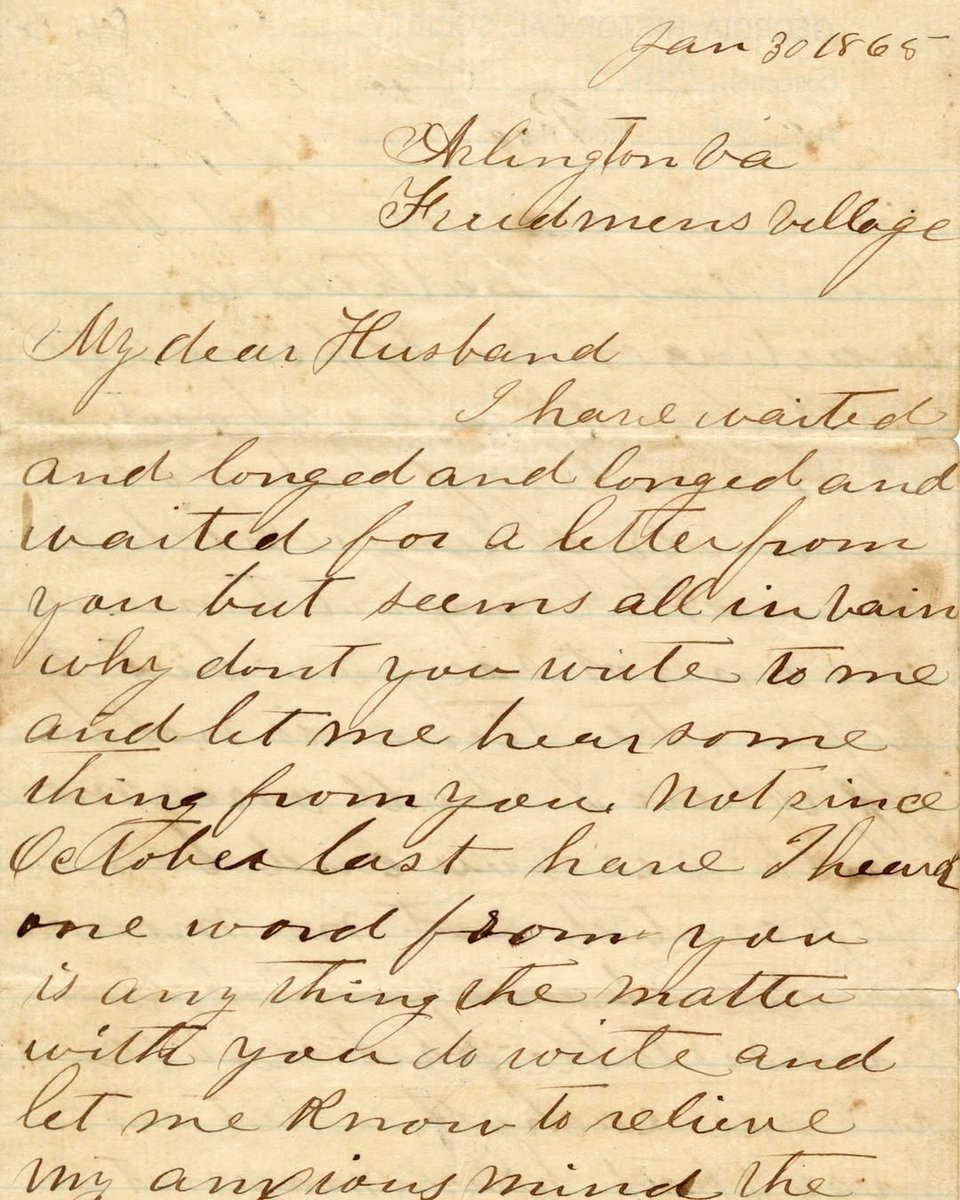 Jan 30 1865
Arlington Va
Freedmens Village
My dear Husband
I have waited
and longed and longed and
waited for a letter from
you but seems all in vain
why dont you write to me
and let me hear some
thing from you. Not since
October last have I heard
one word from you
is any thing the matter
with you do write and
let me know to relieve
my anxious mind the